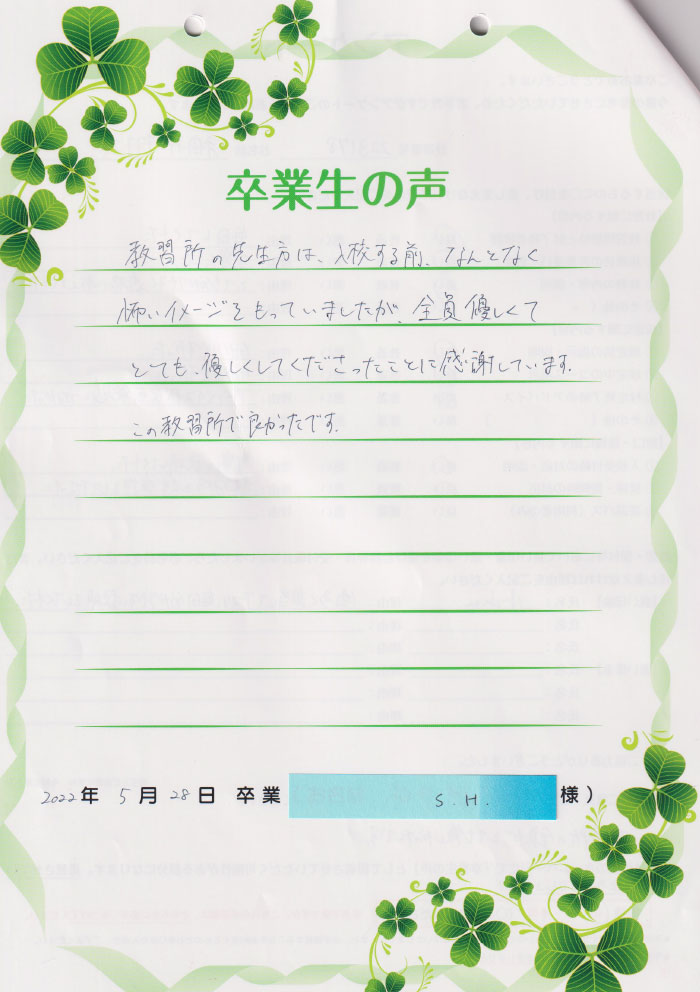 卒業生の声
教習所の先生方は、入校する前、なんとなく
怖いイメージをもっていましたが、全員優しくて
とても、優しくしてくださったことに感謝しています。
この教習所で良かったです。
2022年 5月 28日 卒業 S.H. 様）